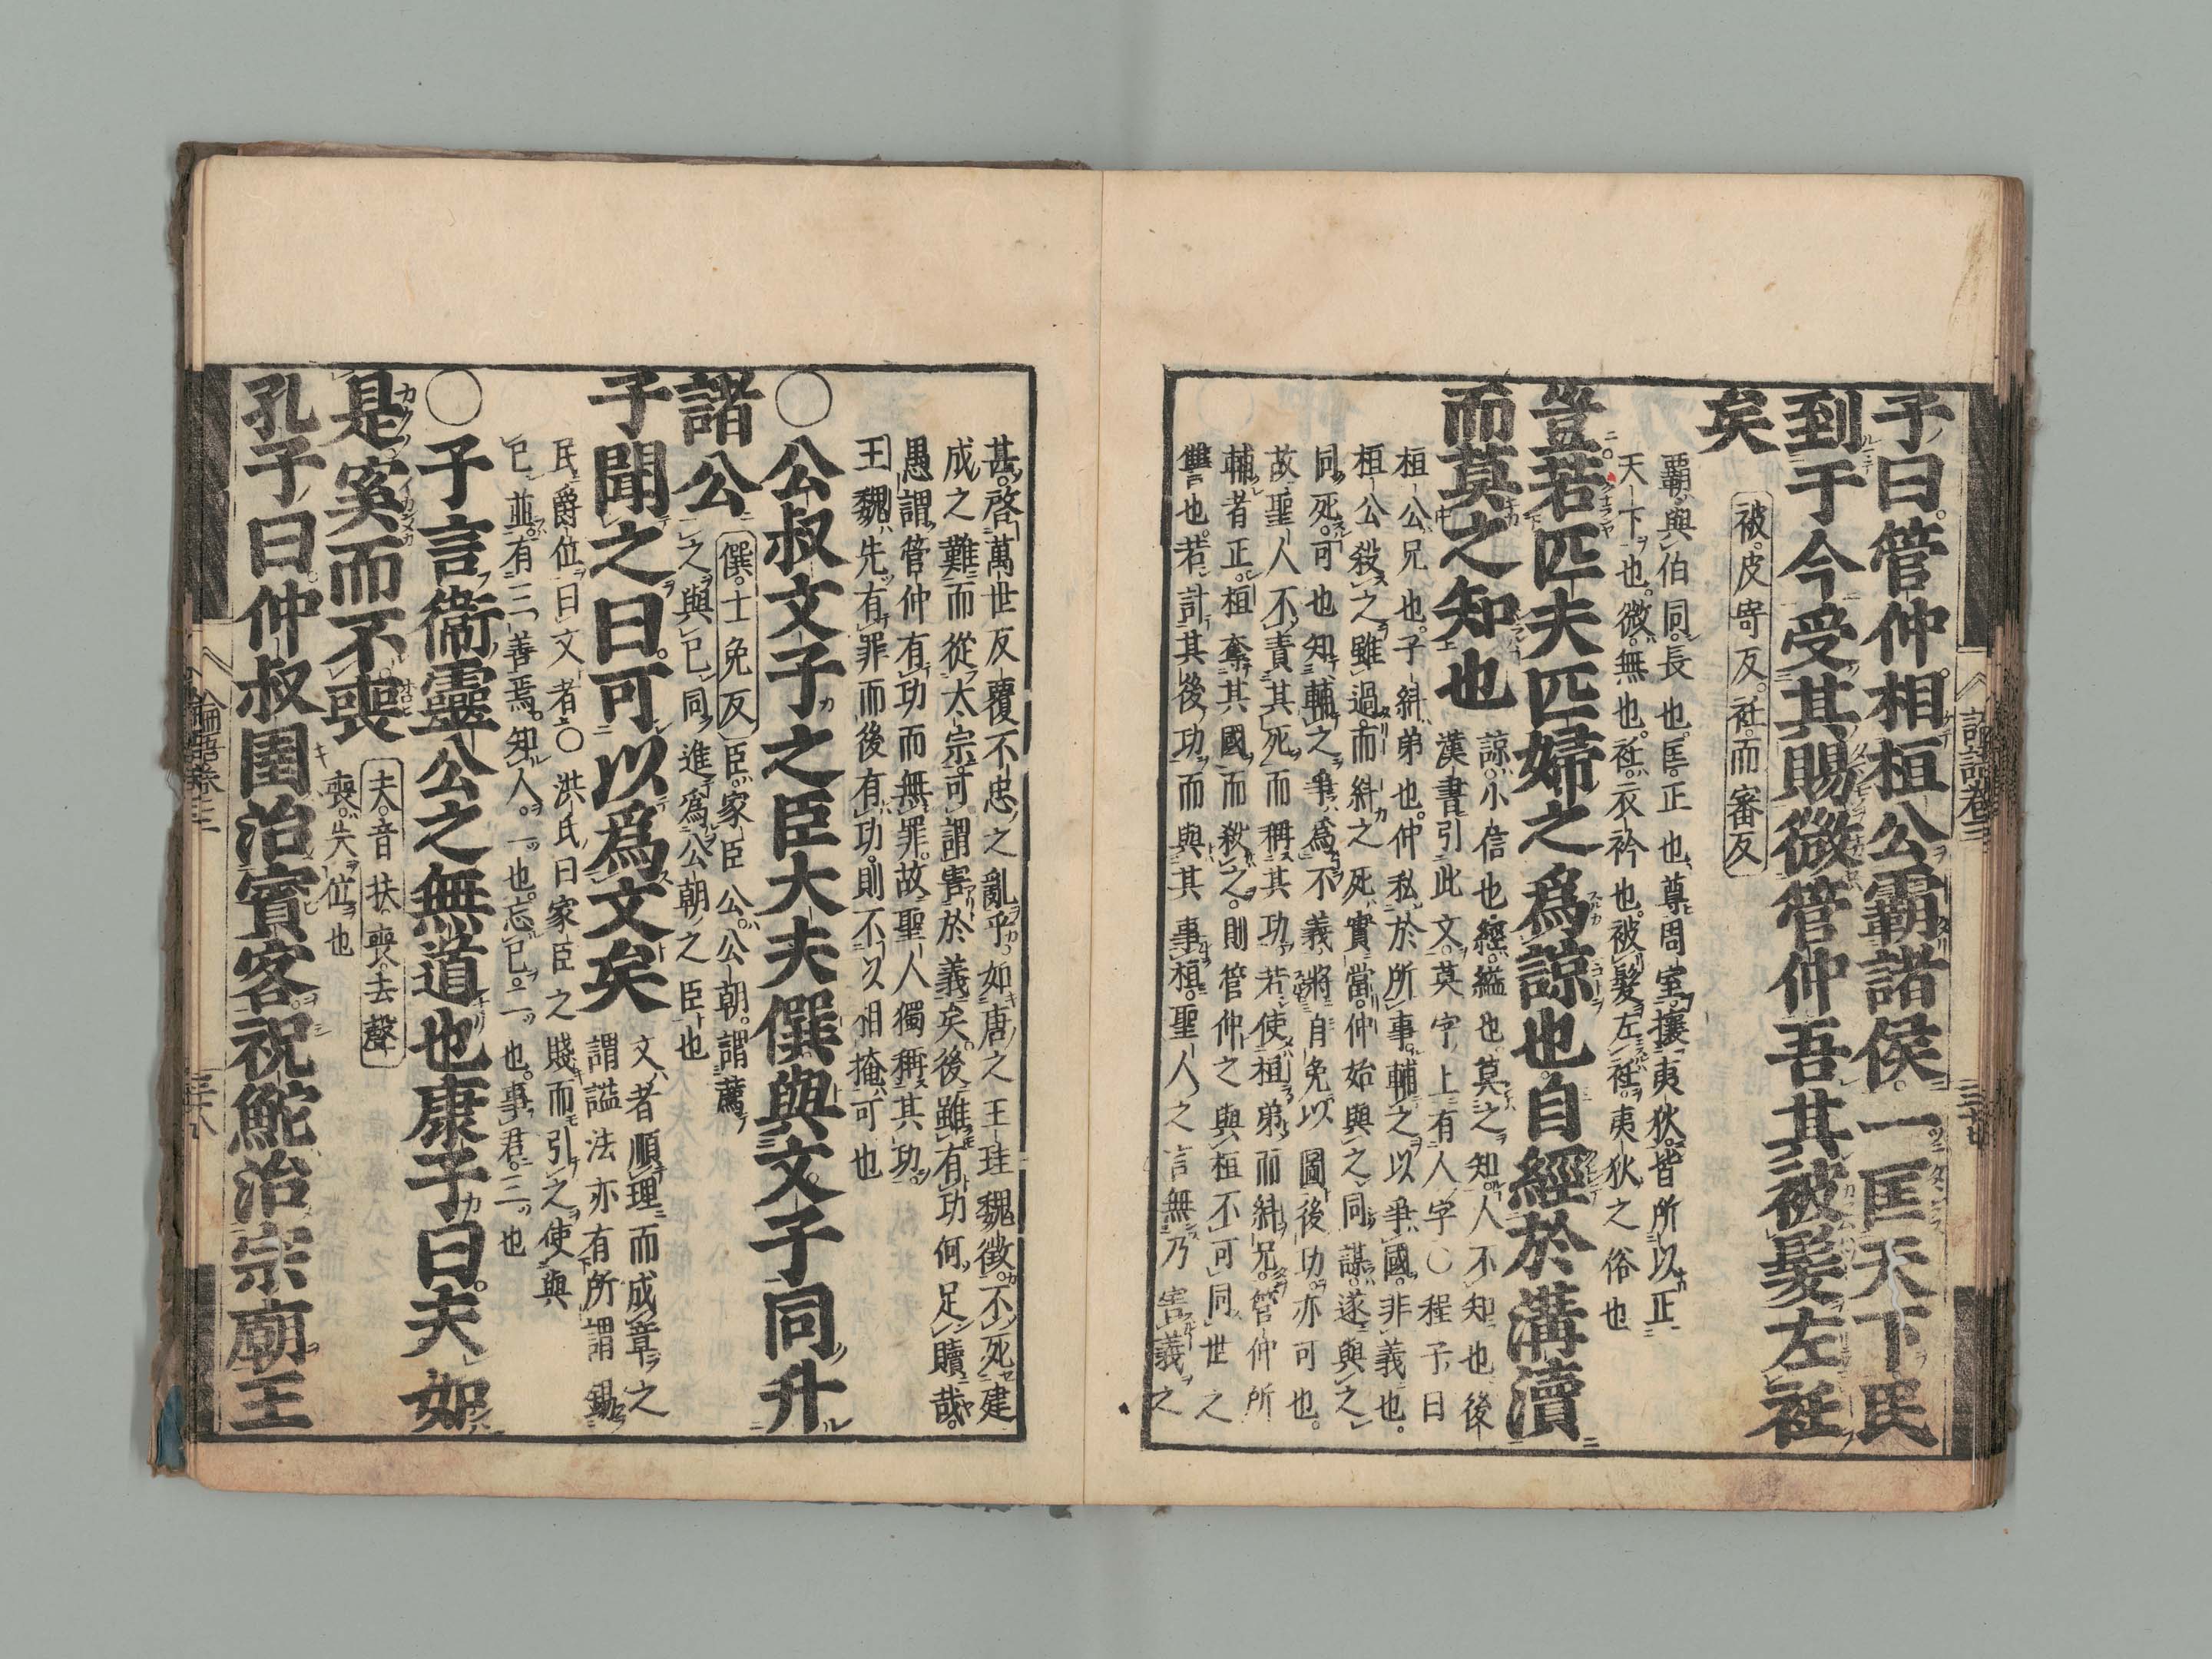 子曰管仲相桓公霸諸侯一匡天下民
到于今受其賜微管仲吾其被髮左衽
矣
被皮寄反衽而審反
霸與伯同長也匡正也尊周室攘夷狄皆所以正
天下也微無也衽衣衿也被髮左衽夷狄之俗也
豈若匹夫匹婦之為諒也自經於溝瀆
而莫之知也
諒小信也經縊也莫之知人不知也後
漢書引此文莫字上有人字〇程子曰
桓公兄也子糾弟也仲私於所事輔之以爭國非義也
桓公殺之雖過而糾之死實當仲始與之同謀遂與之
同死可也知輔之爭為不義將自免以圖後功亦可也
故聖人不責其死而稱其功若使桓弟而糾兄管仲所
輔者正桓奪其國而殺之則管仲之與桓不可同世之
讐也若計其後功而與其事桓聖人之言無乃害義之
甚啓萬世反覆不忠之亂乎如唐之王珪魏徵不死建
成之難而從太宗可謂害於義矣後雖有功何足贖哉
愚謂管仲有功而無罪故聖人獨稱其功
王魏先有罪而後有功則不以相掩可也
〇公叔文子之臣大夫僎與文子同升
諸公
僎士免反
臣家臣公公朝謂薦
之與己同進為公朝之臣也
子聞之曰可以為文矣
文者順理而成章之
謂謚法亦有所謂錫
民爵位曰文者〇洪氏曰家臣之賤而引之使與
己並有三善焉知人一也忘己二也事君三也
〇子言衞靈公之無道也康子曰夫如
是奚而不喪
夫音扶喪去聲
喪失位也
孔子曰仲叔圉治賓客祝鮀治宗廟王
論語卷三
三十八